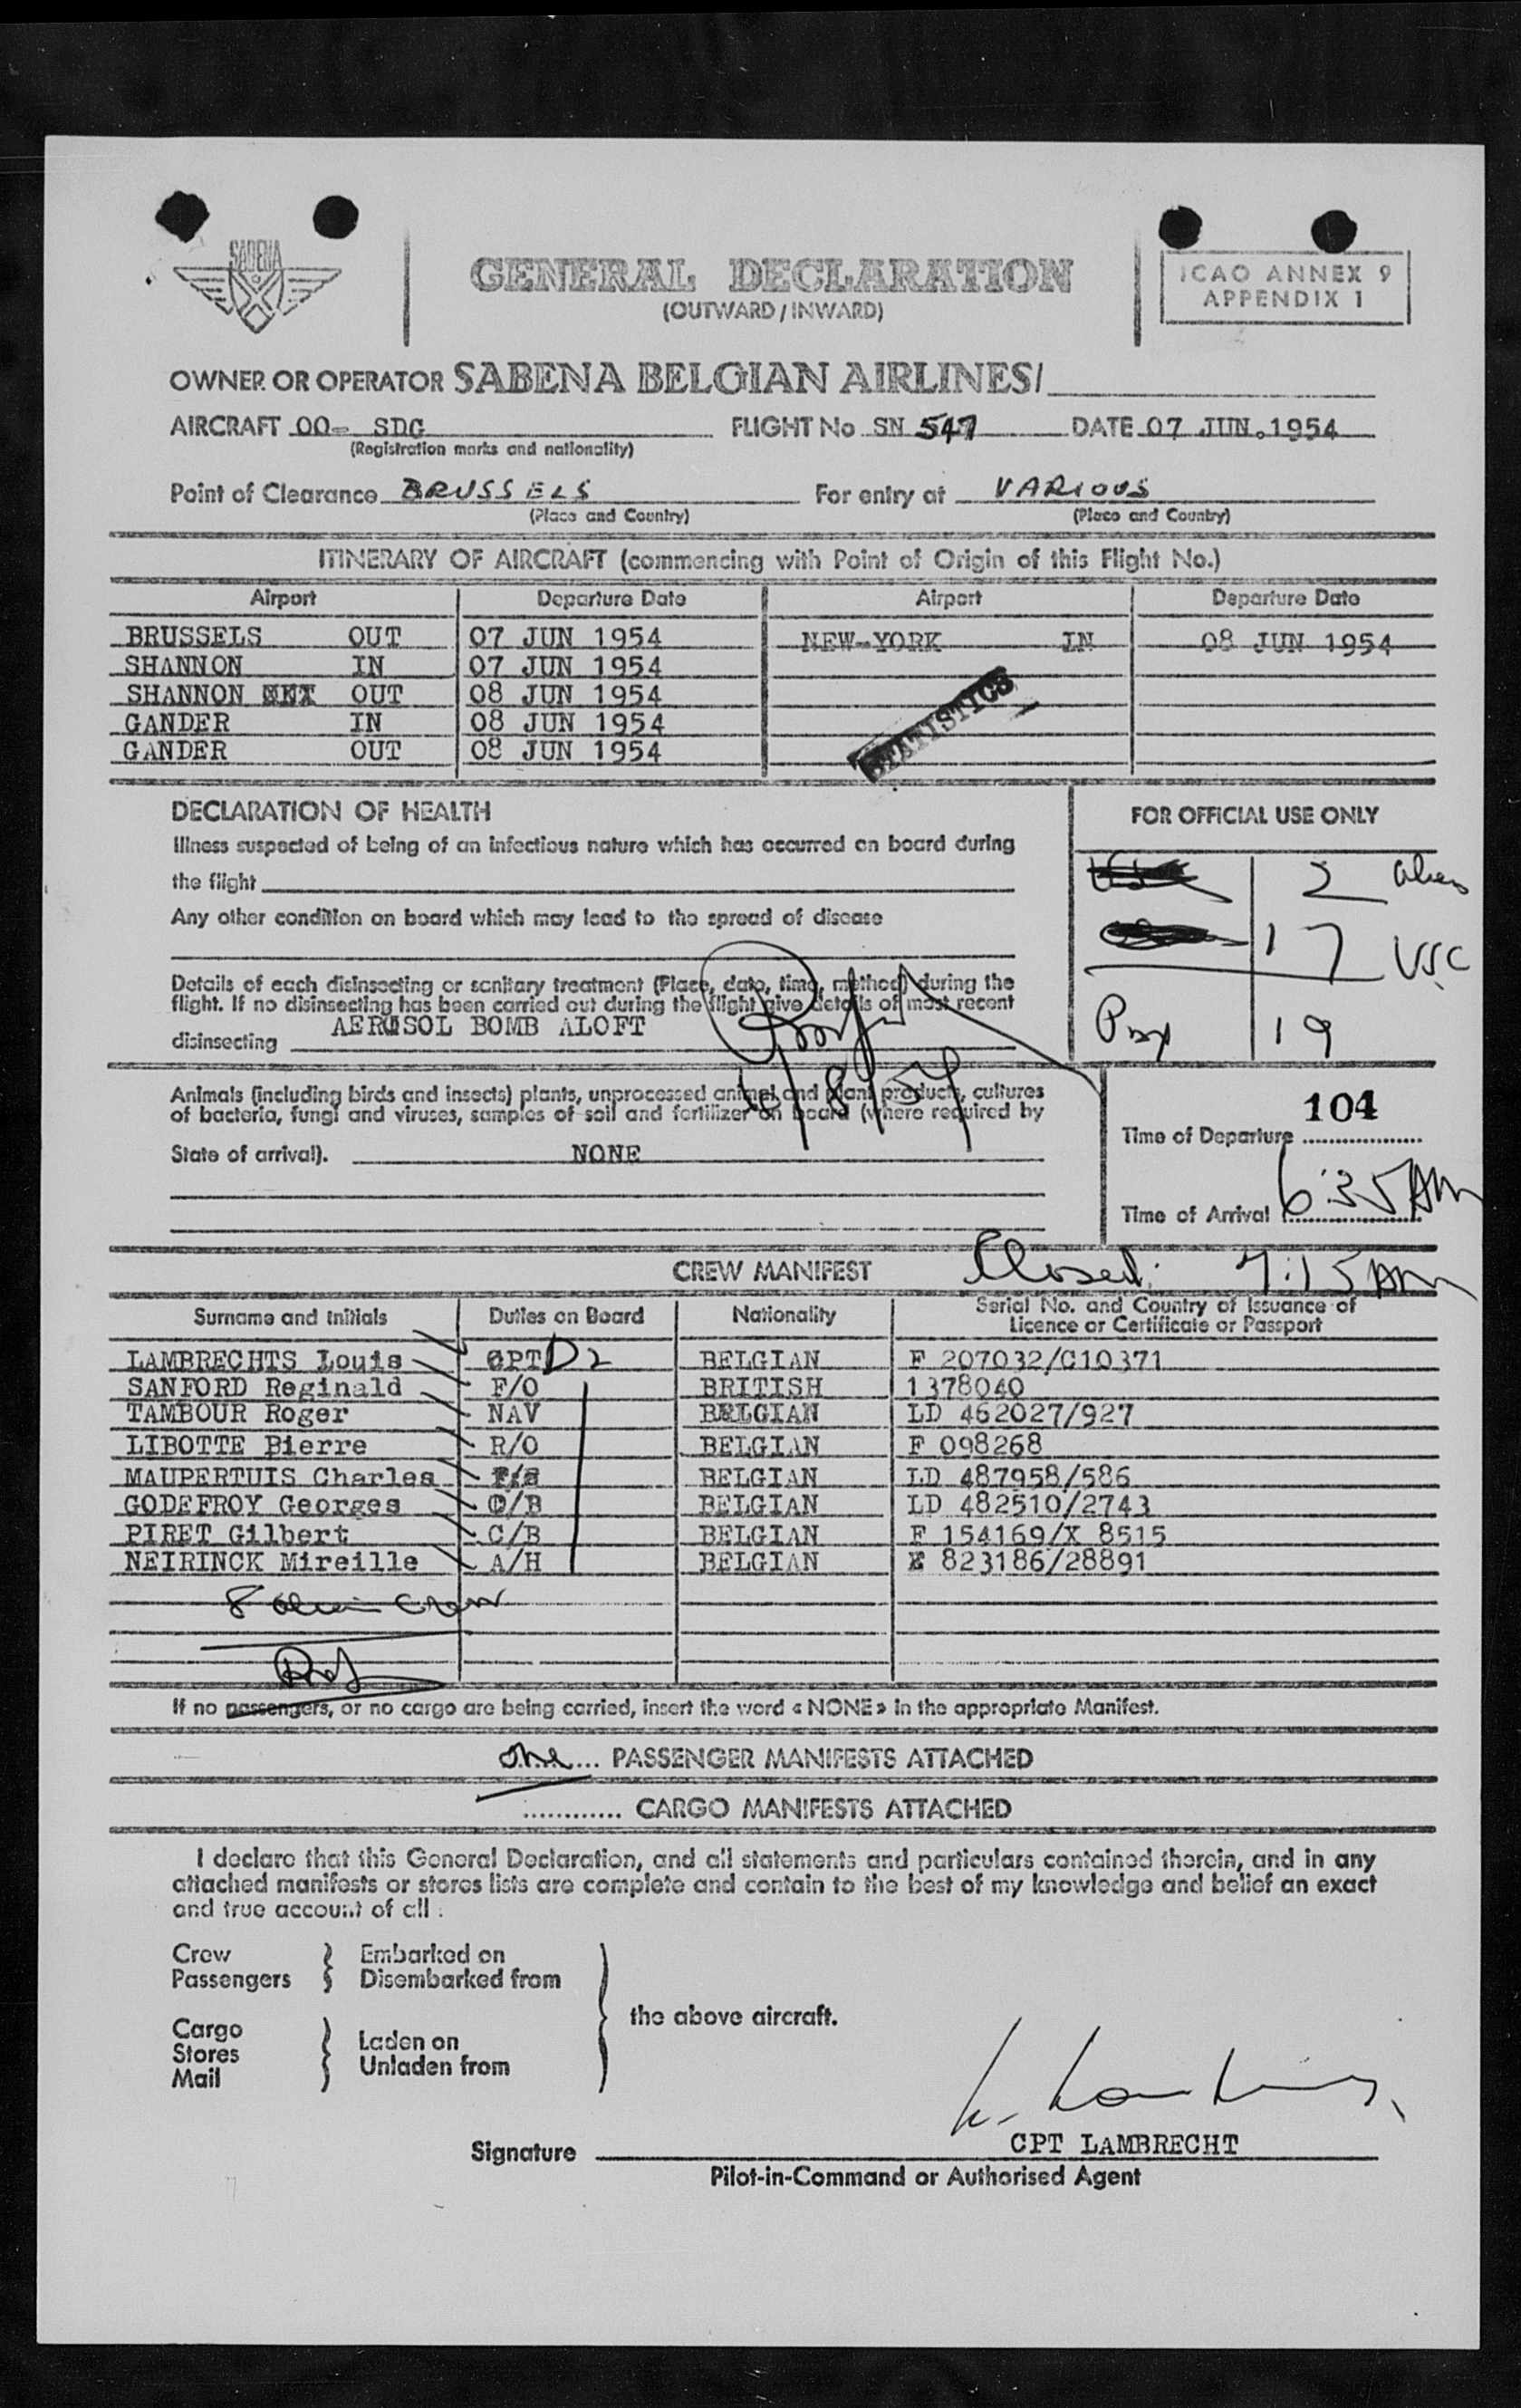 SABENA
GENERAL DECLARATION
(OUTWARD / INWARD)
ICAO ANNEX 9
APPENDIX 1
OWNER OR OPERATOR SABENA BELGIAN AIRLINES/
AIRCRAFT OO- SDG FLIGHT No SN 547 DATE 07 JUN.1954
(Registration marks and nationality)
Point of Clearance BRUSSELS For entry at VARIOUS
(Place and Country) (Place and Country)
ITINERARY OF AIRCRAFT (commencing with Point of Origin of this Flight No.)
Airport Departure Date Airport Departure Date
BRUSSELS OUT 07 JUN 1954 NEW-YORK IN 08 JUN 1954
SHANNON IN 07 JUN 1954
SHANNON OUT 08 JUN 1954
GANDER IN 08 JUN 1954
GANDER OUT 08 JUN 1954
STATISTICS
DECLARATION OF HEALTH
Illness suspected of being of an infectious nature which has occurred on board during
the flight
Any other condition on board which may lead to the spread of disease
Details of each disinsecting or sanitary treatment (Place, date, time, method) during the
flight. If no disinsecting has been carried out during the flight give details of most recent
disinsecting AEROSOL BOMB ALOFT
FOR OFFICIAL USE ONLY
2
17 USC
19
Animals (including birds and insects) plants, unprocessed animal and plant products, cultures
of bacteria, fungi and viruses, samples of soil and fertilizer on board (where required by
State of arrival). NONE
104
Time of Departure
Time of Arrival 6:35 AM
Closed: 7:15 AM
CREW MANIFEST
Surname and Initials Duties on Board Nationality Serial No. and Country of Issuance of
Licence or Certificate or Passport
LAMBRECHTS Louis CPT D2 BELGIAN F 207032/C10371
SANFORD Reginald F/O BRITISH 1378040
TAMBOUR Roger NAV BELGIAN LD 462027/927
LIBOTTE Pierre R/O BELGIAN F 098268
MAUPERTUIS Charles BELGIAN LD 487958/586
GODEFROY Georges C/B BELGIAN LD 482510/2743
PIRET Gilbert C/B BELGIAN F 154169/X 8515
NEIRINCK Mireille A/H BELGIAN E 823186/28891
8 alien crew
If no passengers, or no cargo are being carried, insert the word « NONE » in the appropriate Manifest.
one... PASSENGER MANIFESTS ATTACHED
............ CARGO MANIFESTS ATTACHED
I declare that this General Declaration, and all statements and particulars contained therein, and in any
attached manifests or stores lists are complete and contain to the best of my knowledge and belief an exact
and true account of all :
Crew Embarked on
Passengers Disembarked from
the above aircraft.
Cargo
Stores Laden on
Mail Unladen from
CPT LAMBRECHT
Signature
Pilot-in-Command or Authorised Agent